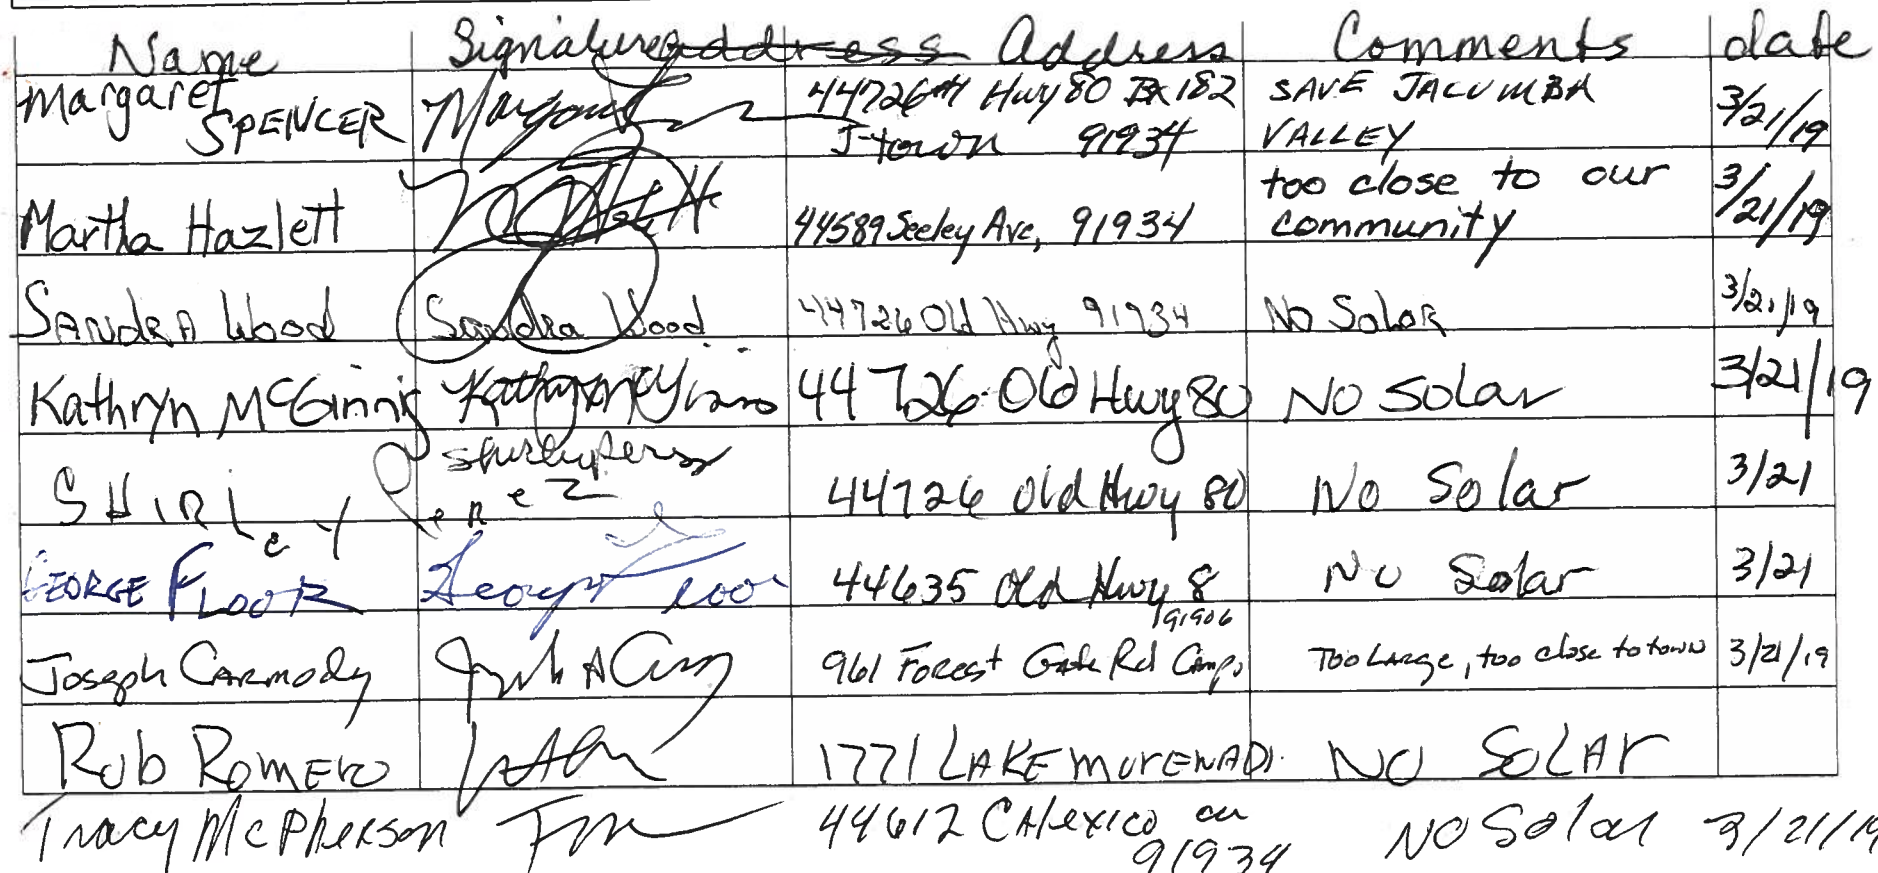 Name Signature address Address Comments date
Margaret SPENCER Margaret 44726 Hwy 80 Bx 182 SAVE JACUMBA 3/21/19
J-town 91934 VALLEY
Martha Hazlett 44589 Seeley Ave, 91934 too close to our 3/21/19
community
SANDRA Wood Sandra Wood 44726 Old Hwy 91934 No Solar 3/21/19
Kathryn McGinnis Kathryn McGinnis 44726 Old Hwy 80 No Solar 3/21/19
Shirley Perez
SHIRLeY PeReZ 44726 Old Hwy 80 No Solar 3/21
GEORGE FLOOR George Floor 44635 Old Hwy 8 No Solar 3/21
91906
Joseph Carmody 961 Forest Gate Rd Campo Too Large, too close to town 3/21/19
Rob Romero 1771 LAKE MORENA DR. NO SOLAR
Tracy McPherson 44612 Calexico av No Solar 3/21/19
91934